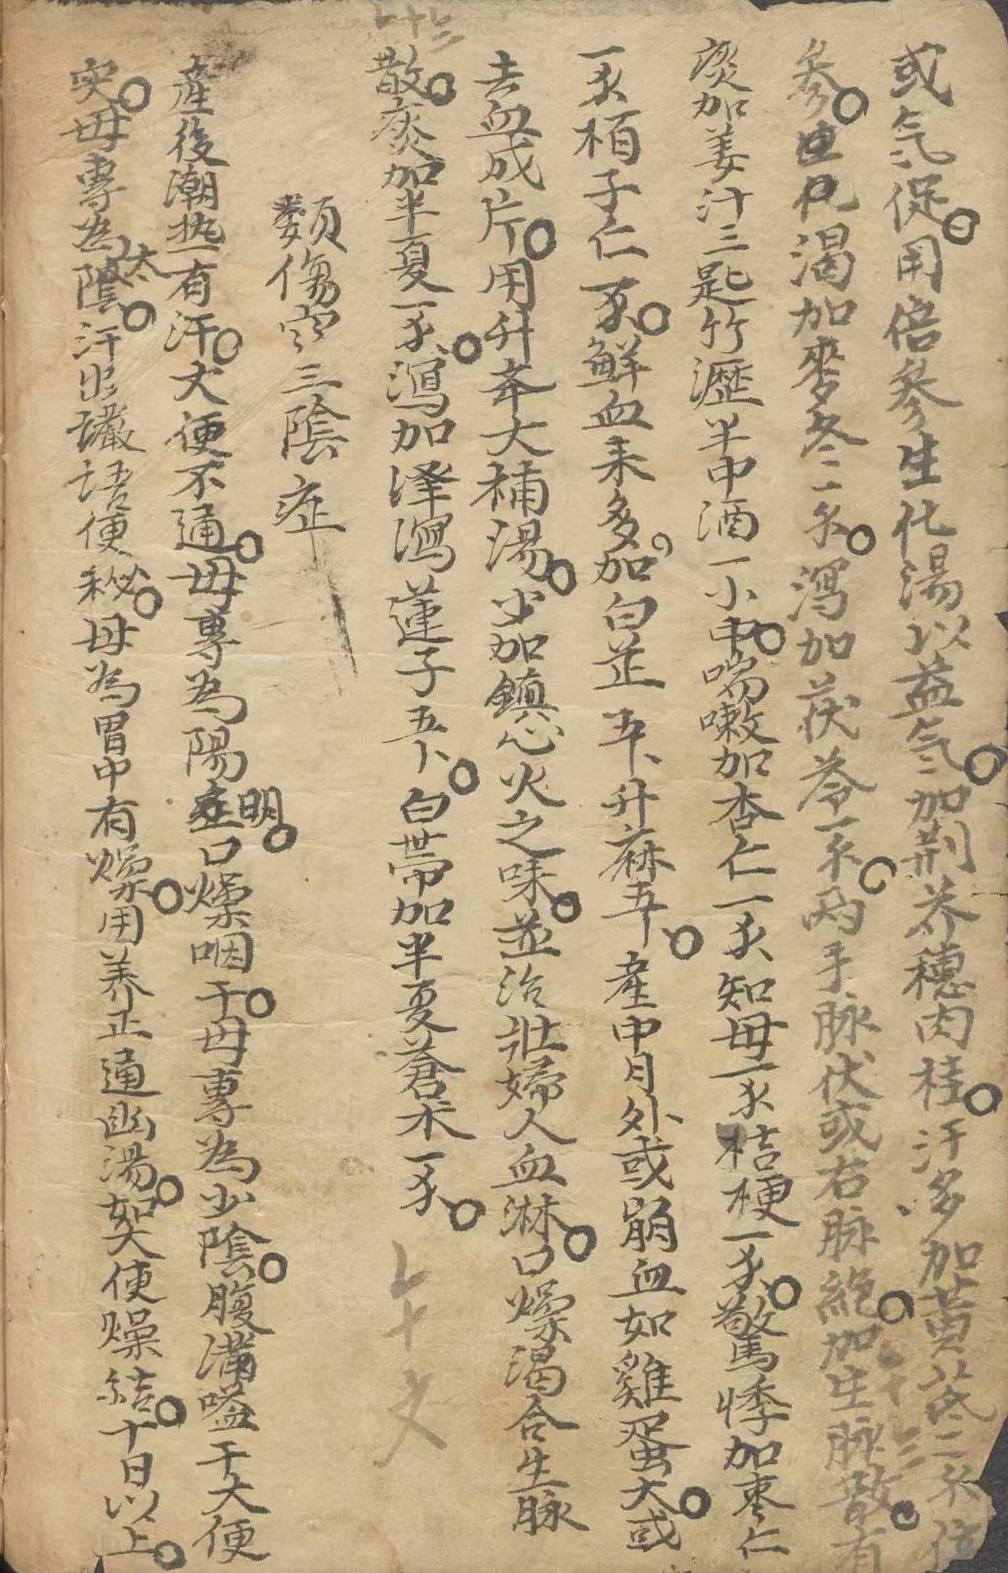 或气促用倍參生化湯以益气加荆芥穗肉桂汗多加黄芪二
參速凡渴加麥冬二瀉加茯苓一兩手脉伏或右脉絶加生脉散有
痰加姜汁三匙竹瀝半中酒一小中喘嗽加杏仁一知母一桔梗一驚悸加枣仁
一栢子仁一鮮血来多加白芷五卜升麻五卜產中月外或崩血如雞蛋大或
去血成片用升举大補湯少加鎮心火之味並治壯婦人血淋口燥渴合生脉
散痰加半夏一瀉加泽瀉蓮子五卜白帶加半夏蒼术一
類傷寒三陰症
產後潮热有汗大便不通毋專為陽明症口燥咽干毋專為少陰腹满嗌干大便
实毋專為太陰汗出譫语便秘毋為胃中有燥用养正通幽湯如大便燥結十日以上